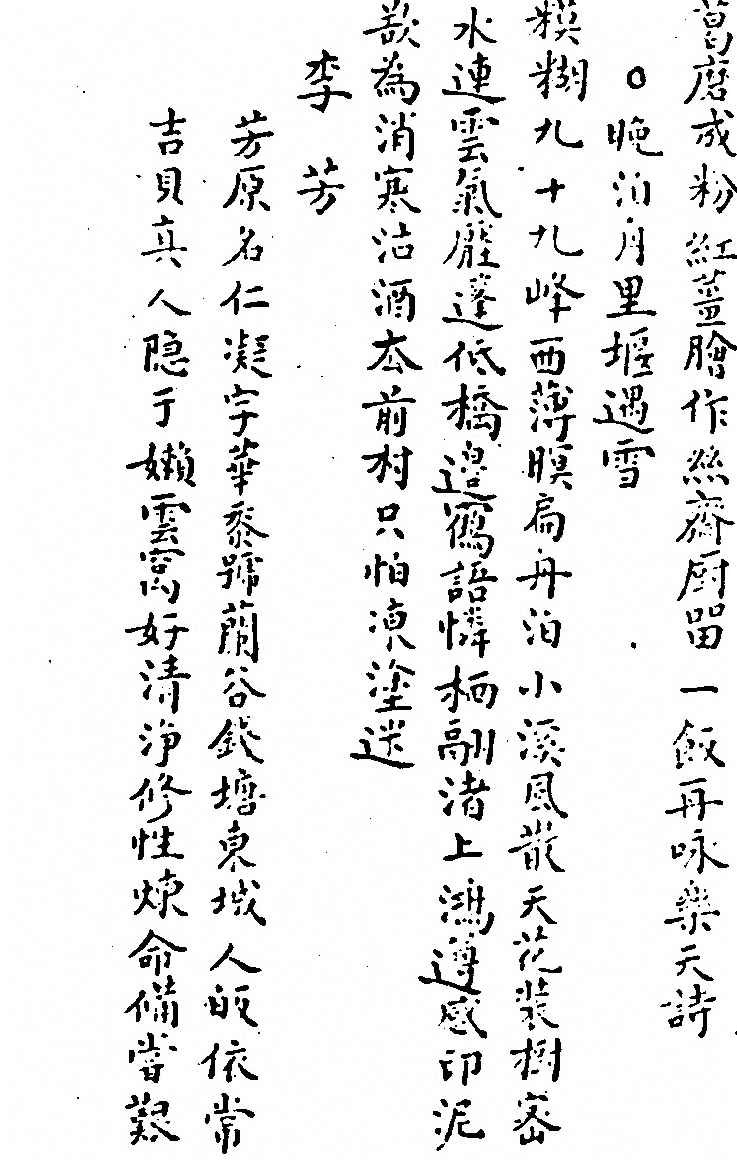 葛磨成粉紅薑膾作絲齋厨留一飯再咏樂天詩
○晚泊舟里堰遇雪
糢糊九十九峰西薄暝扁舟泊小溪風散天花裝樹密
水連雲氣壓蓬低橋邊寫語憐栖翮渚上鴻遵感印泥
欲為消寒沽酒去前村只怕凍塗迷
李芳
芳原名仁凝字華黍號蘭谷錢塘東城人皈依常
吉貝真人隐于嬾雲窩好清淨修性煉命備嘗艱